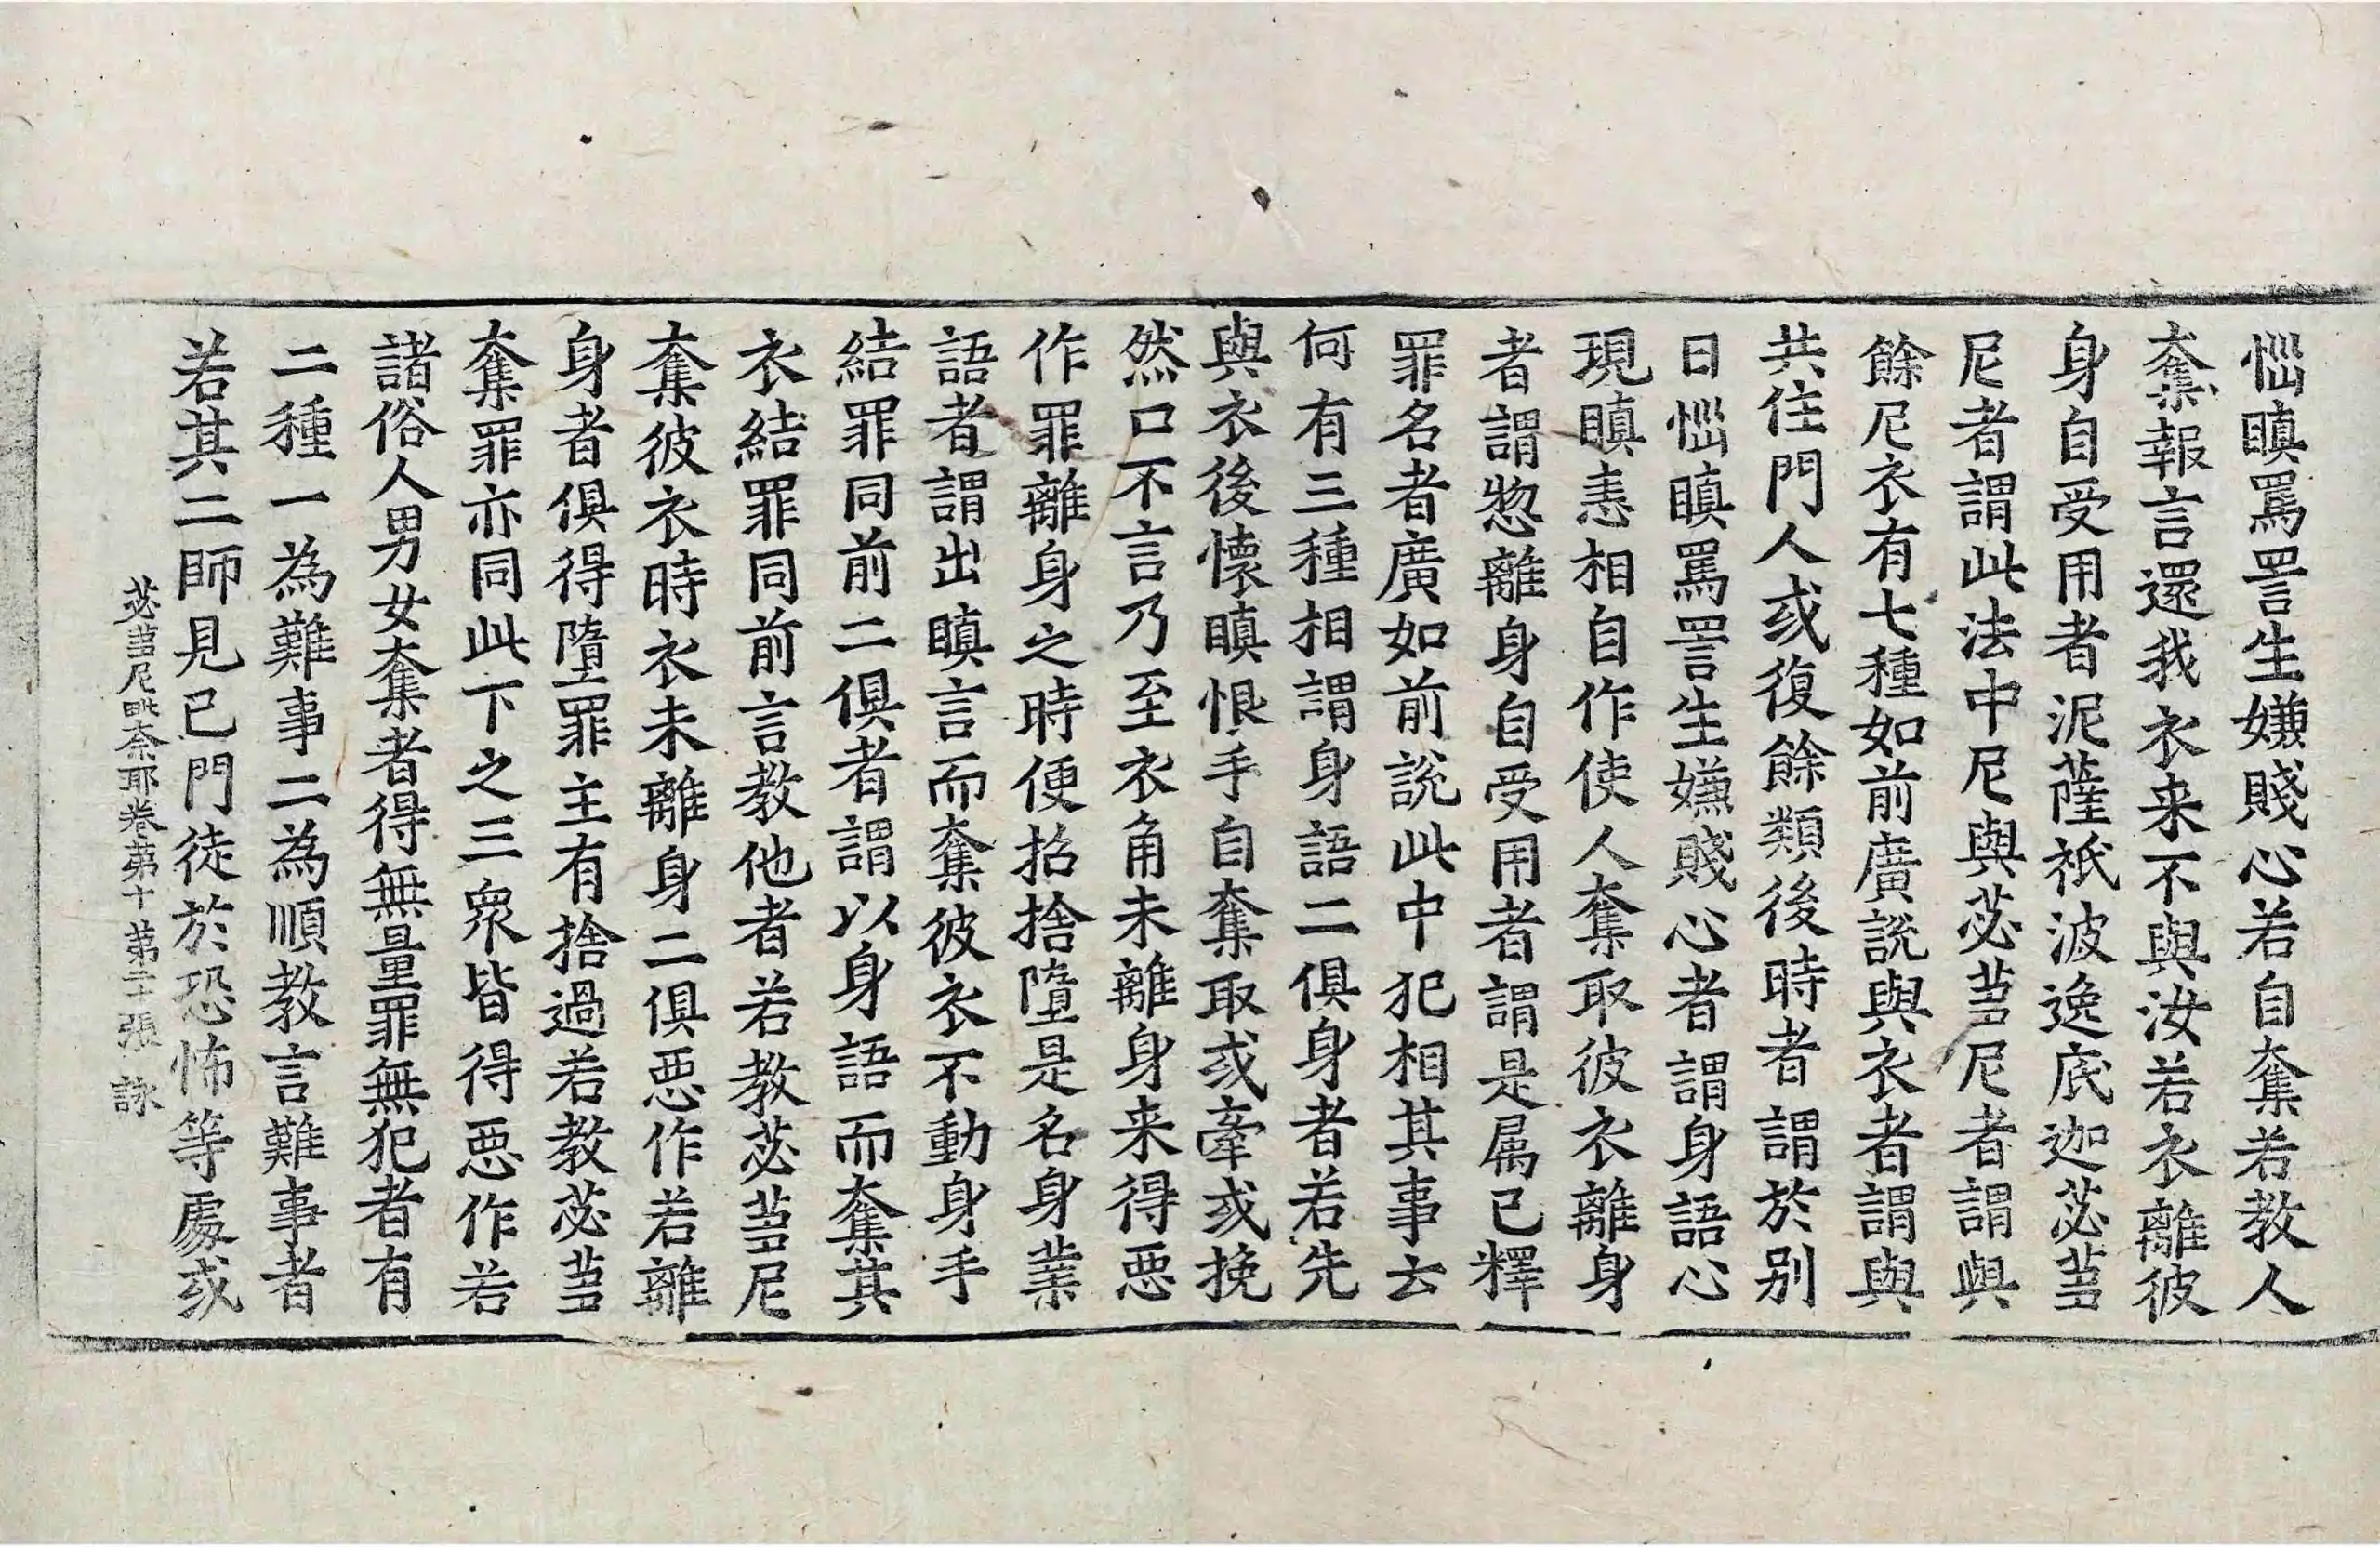 惱瞋罵詈生嫌賤心若自奪若教人
奪報言還我衣来不與汝若衣離彼
身自受用者泥薩祇波逸底迦苾蒭
尼者謂此法中尼與苾蒭尼者謂與
餘尼衣有七種如前廣說與衣者謂與
共住門人或復餘類後時者謂於别
日惱瞋罵詈生嫌賤心者謂身語心
現瞋恚相自作使人奪取彼衣離身
者謂惣離身自受用者謂是属已釋
罪名者廣如前說此中犯相其事云
何有三種相謂身語二俱身者若先
與衣後懷瞋恨手自奪取或牽或挽
然口不言乃至衣角未離身来得惡
作罪離身之時便招捨墮是名身業
語者謂出瞋言而奪彼衣不動身手
結罪同前二俱者謂以身語而奪其
衣結罪同前言教他者若教苾蒭尼
奪彼衣時衣未離身二俱惡作若離
身者俱得墮罪主有捨過若教苾蒭
奪罪亦同此下之三衆皆得惡作若
諸俗人男女奪者得無量罪無犯者有
二種一為難事二為順教言難事者
若其二師見已門徒於恐怖等處或
苾蒭尼毗奈耶卷第十 第二十張 詠